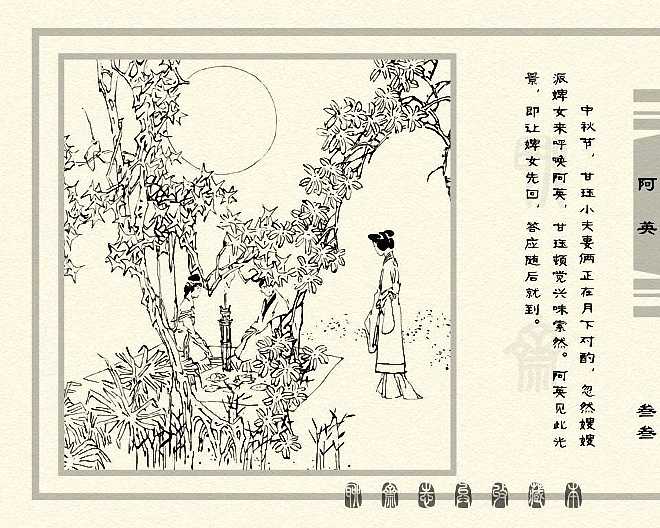 中秋节，甘珏小夫妻俩正在月下对酌，忽然嫂嫂
派婢女来呼唤阿英，甘珏顿觉兴味索然。阿英见此光
景，即让婢女先回，答应随后就到。
阿英
叁叁